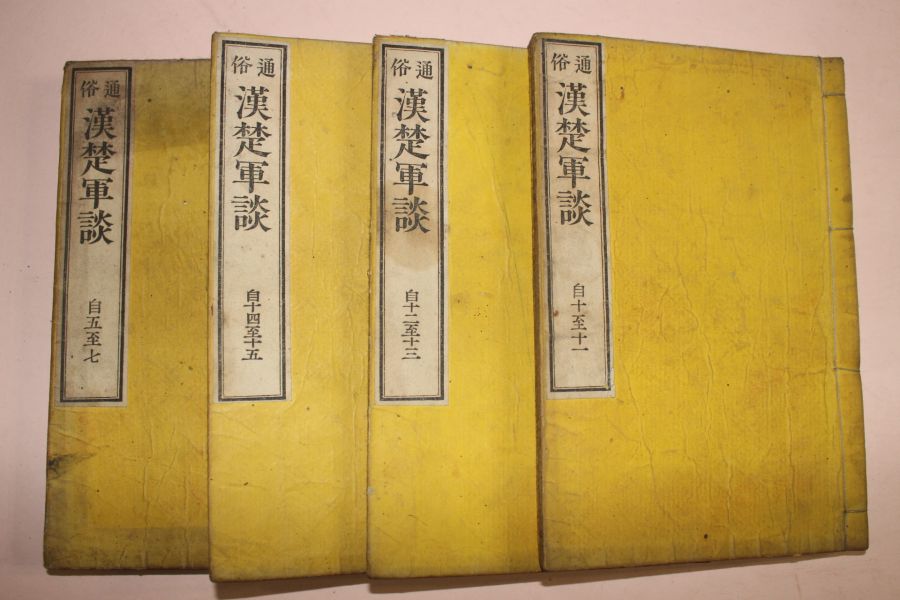 通俗
漢楚軍談
自十至十一
通俗
漢楚軍談
自十二至十三
通俗
漢楚軍談
自十四至十五
通俗
漢楚軍談
自五至七